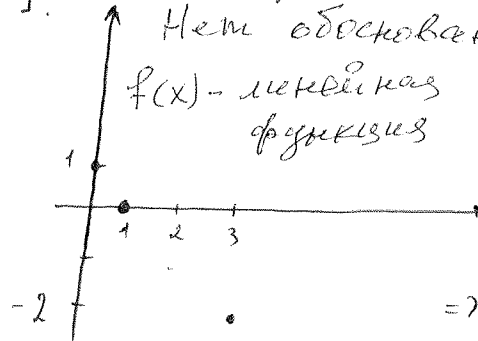 Нет обоснован
f(x) - линейная
функция
1
1 2 3
-2
=>